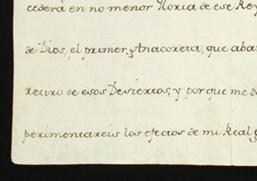 cederá en no menor Gloria de ese Rey
de Dios, el primer Anacoreta, que aba
retiro de esos Desiertos; y por que me d
perimentareis los efectos de mi Real g